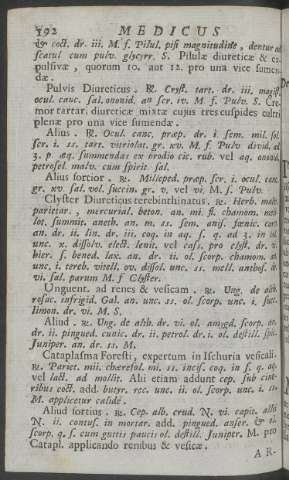 192 MEDICUS
& coct. dr. iii. M. f. Pilul. pisi magnitudine, dentur ad
scatul cum pulv. glycyrr. S. Pilulæ diureticæ & ex-
pulsivæ, quorum 10. aut 12. pro una vice sumen-
dæ.
Pulvis Diureticus. ℞. Cryst. tart. dr. iii. magist.
ocul. canc. sal. ononid. an scr. iv. M. f. Pulv. S. Cre-
mor tartar. diureticæ mixtæ cujus tres cuspides cultri
plenæ pro una vice sumendæ.
Alius. ℞. Ocul. canc. præp. dr. i. sem. mil. sol.
scr. i. ss. tart. vitriolat. gr. xv. M. f. Pulv. divid. ad
3. p. æq. summendas ex brodio cic. rub. vel aq. ononid.
petrosel. malv. cum spirit. sal.
Alius fortior. ℞. Milleped. præp. scr. i. ocul. canc.
gr. xv. sal. vol. succin. gr. v. vel vi. M. f. Pulv.
Clyster Diureticus terebinthinatus. ℞. Herb. malv.
parietar., mercurial. beton. an. mi. fl. chamom. meli-
lot. summit. aneth. an. m. ss. sem. anis. fœnic. carv.
an. dr. ii. lin. dr. iii. coq. in aq. s. q. ad 1. in col.
unc. x. dissolv. elect. lenit. vel cass. pro clyst. dr. v.
hier. s. bened. lax. an. dr. ii. ol. scorp. chamom. an.
unc. i. tereb. vitell. ov. dissol. unc. ss. mell. anthos. dr.
vi. sal. parum M. f Clyster.
Unguent. ad renes & vesicam. ℞. Ung. de alth.
rosac. infrigid. Gal. an. unc. ss. ol. scorp. unc. i. succ.
limon. dr. vi. M. S.
Aliud. ℞. Ung. de alth. dr. vi. ol. amygd. scorp. an.
dr. ii. pingued. cunic. dr. ii. petrol. dr. i. ol. destill. spic.
Juniper. an. dr. ss. M.
Cataplasma Foresti, expertum in Ischuria vesicali.
℞. Pariet. mii. chærefol. mi. ss. incis. coq. in s. q. aq.
vel lact. ad mollit. Alii etiam addunt cep. sub cine-
ribus coct. add. butyr. rec. unc. ii. ol. scorp. unc. i. ss.
M. applicetur calidè.
Aliud fortius. ℞. Cep. alb. crud. N. vi. capit. allii
N. ii. contus. in mortar. add. pingued. anser. & ol.
scorp. q. s. cum guttis paucis ol. destill. Juniper. M. pro
Catapl. applicando renibus & vesicæ.
AR-